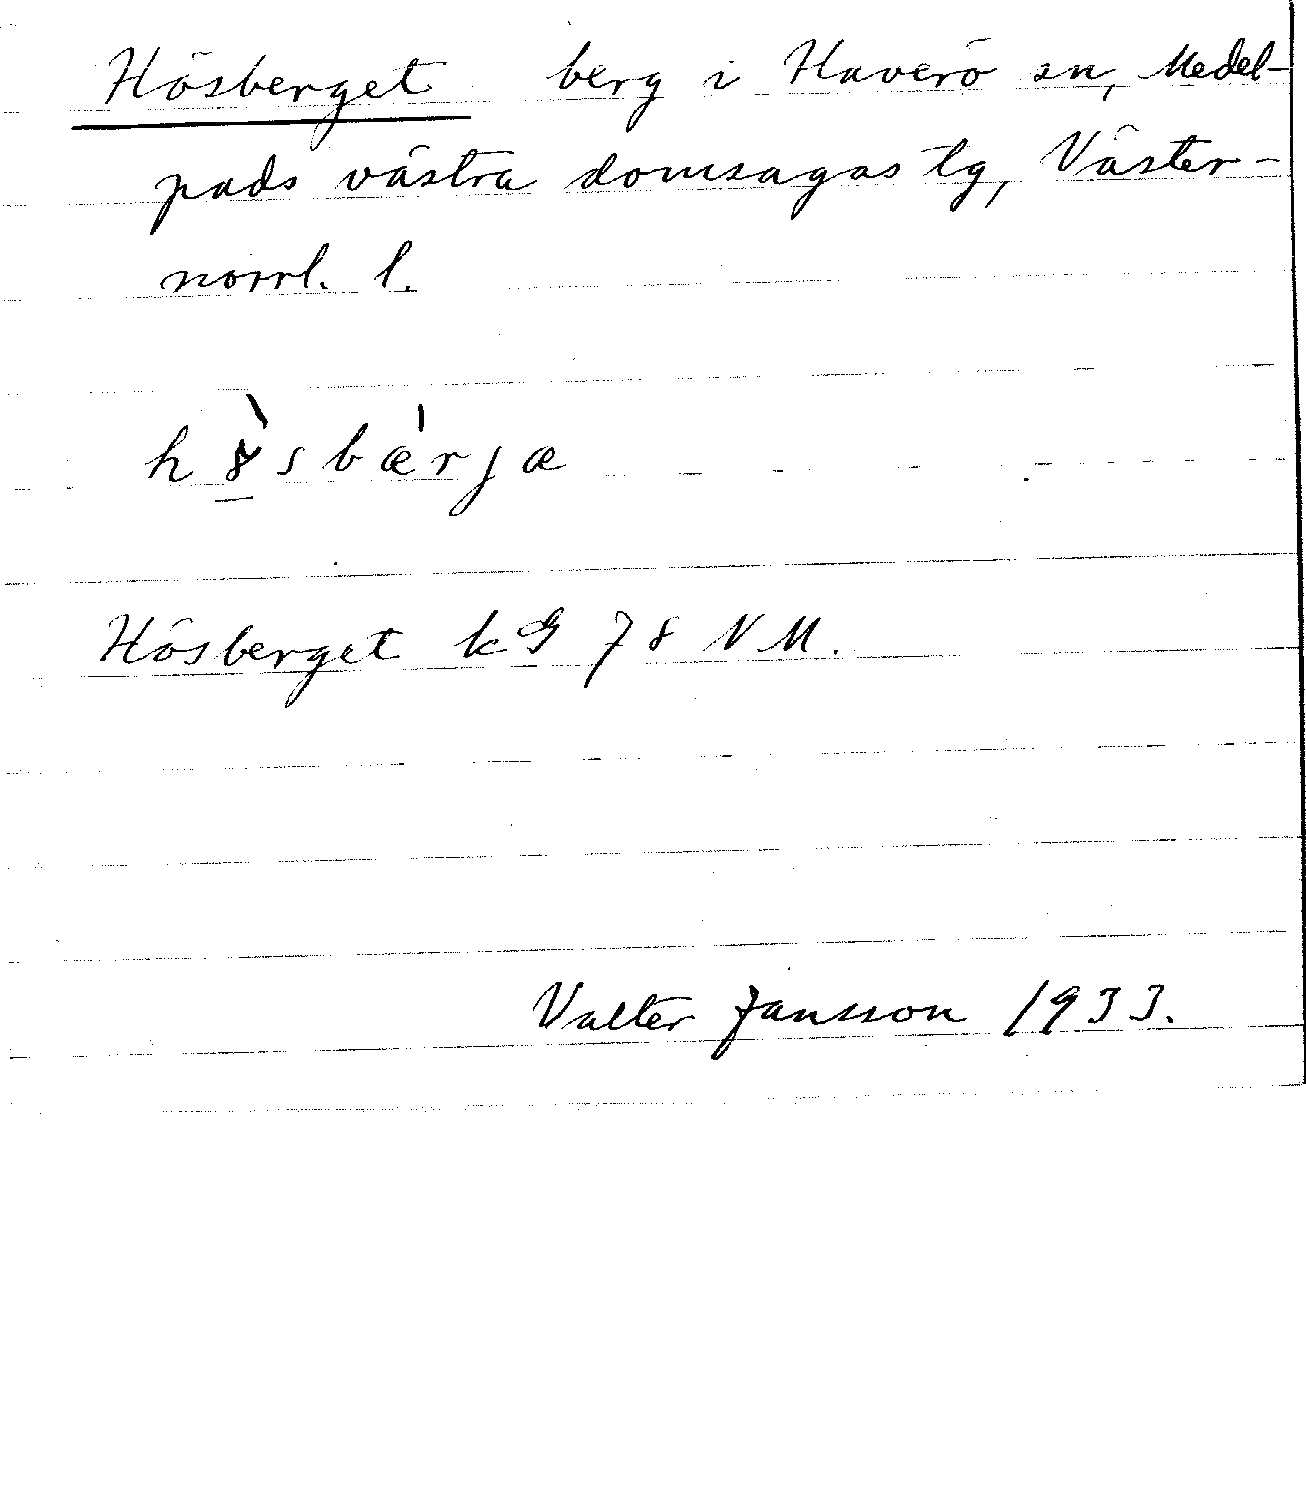 Hösberget berg i Haverö sn, Medel-
pads västra domsagas tg, Väster-
norrl. l.
hö̀sbæ̍rjæ
Hösberget kG 78 NM.
Valter Jansson 1933.